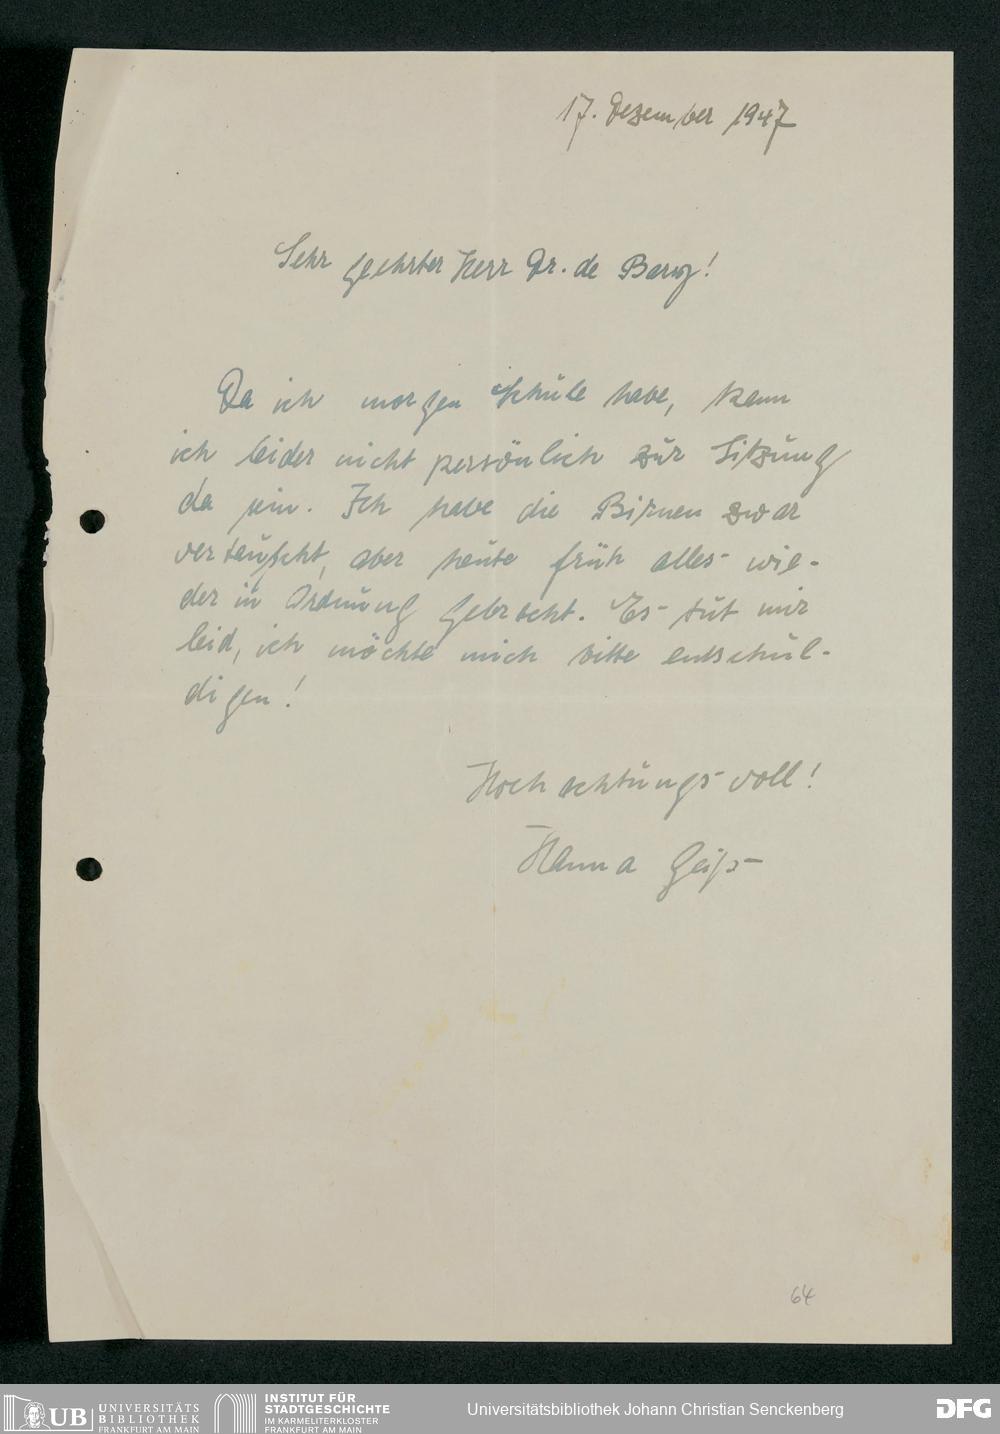 17. Dezember 1947
Sehr geehrter Herr Dr. de Bary!
Da ich morgen Schule habe, kann
ich leider nicht persönlich zur Sitzung
da sein. Ich habe die Birnen zwar
vertauscht, aber heute früh alles wie-
der in Ordnung gebracht. Es tut mir
leid, ich möchte mich bitte entschul-
digen!
Hochachtungsvoll!
Hanna Geiß
64
UB UNIVERSITÄTS
BIBLIOTHEK
FRANKFURT AM MAIN
INSTITUT FÜR
STADTGESCHICHTE
IM KARMELITERKLOSTER
FRANKFURT AM MAIN
Universitätsbibliothek Johann Christian Senckenberg
DFG